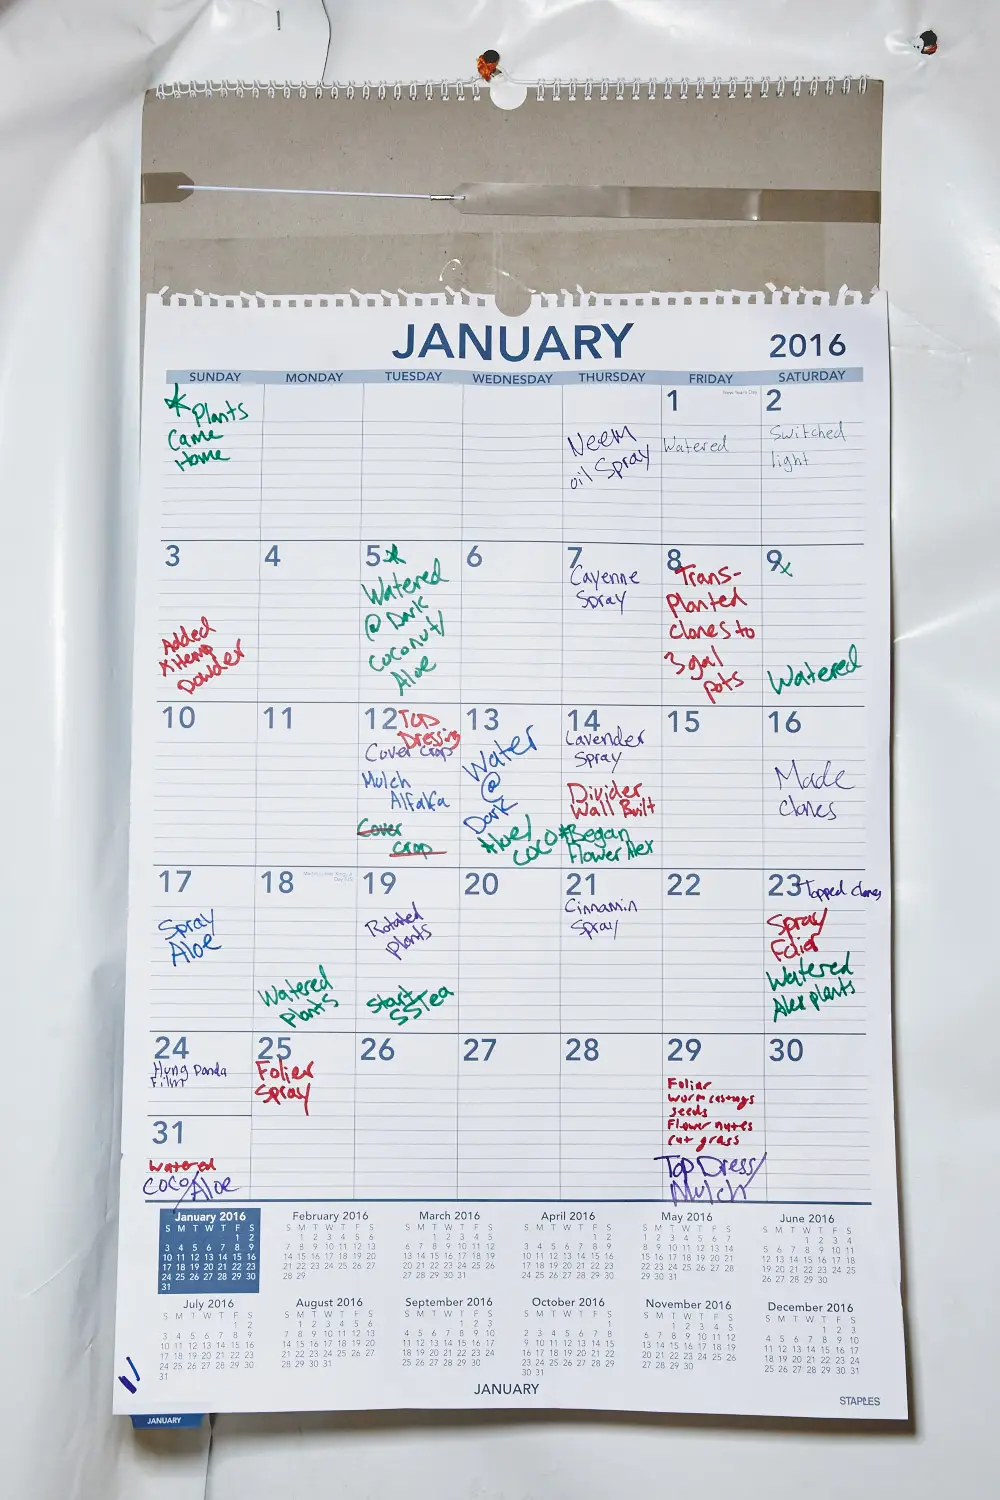 JANUARY 2016
SUNDAY MONDAY TUESDAY WEDNESDAY THURSDAY FRIDAY SATURDAY
* Plants
Came
Home
Neem
oil Spray
1
Watered
2
Switched
light
3
Added
Powder
4
5*
Watered
@ Dark
Coconut/
Aloe
6
7
Cayenne
Spray
8
Trans-
Planted
clones to
3 gal
pots
9x
Watered
10
11
12 Top
Dressing
Cover Crop
Mulch
Alfalfa
Cover
crop
13
Water
@
Dark
Aloe/
Coco
14
Lavender
Spray
Divider
Wall Built
*Began
Flower Alex
15
16
Made
clones
17
Spray
Aloe
18
Watered
Plants
19
Rotated
plants
Start
SSTea
20
21
Cinnamin
Spray
22
23 Topped clones
Spray
Watered
Alex plants
24
Hung Panda
Film
25
Folier
Spray
26
27
28
29
Foliar
worm castings
seeds
Flower nutes
cut grass
Top Dress/
Mulch
30
31
Watered
Coco/Aloe
January 2016
S M T W T F S
1 2
3 4 5 6 7 8 9
10 11 12 13 14 15 16
17 18 19 20 21 22 23
24 25 26 27 28 29 30
31
February 2016
S M T W T F S
1 2 3 4 5 6
7 8 9 10 11 12 13
14 15 16 17 18 19 20
21 22 23 24 25 26 27
28 29
March 2016
S M T W T F S
1 2 3 4 5
6 7 8 9 10 11 12
13 14 15 16 17 18 19
20 21 22 23 24 25 26
27 28 29 30 31
April 2016
S M T W T F S
1 2
3 4 5 6 7 8 9
10 11 12 13 14 15 16
17 18 19 20 21 22 23
24 25 26 27 28 29 30
May 2016
S M T W T F S
1 2 3 4 5 6 7
8 9 10 11 12 13 14
15 16 17 18 19 20 21
22 23 24 25 26 27 28
29 30 31
June 2016
S M T W T F S
1 2 3 4
5 6 7 8 9 10 11
12 13 14 15 16 17 18
19 20 21 22 23 24 25
26 27 28 29 30
July 2016
S M T W T F S
1 2
3 4 5 6 7 8 9
10 11 12 13 14 15 16
17 18 19 20 21 22 23
24 25 26 27 28 29 30
31
August 2016
S M T W T F S
1 2 3 4 5 6
7 8 9 10 11 12 13
14 15 16 17 18 19 20
21 22 23 24 25 26 27
28 29 30 31
September 2016
S M T W T F S
1 2 3
4 5 6 7 8 9 10
11 12 13 14 15 16 17
18 19 20 21 22 23 24
25 26 27 28 29 30
October 2016
S M T W T F S
1
2 3 4 5 6 7 8
9 10 11 12 13 14 15
16 17 18 19 20 21 22
23 24 25 26 27 28 29
30 31
November 2016
S M T W T F S
1 2 3 4 5
6 7 8 9 10 11 12
13 14 15 16 17 18 19
20 21 22 23 24 25 26
27 28 29 30
December 2016
S M T W T F S
1 2 3
4 5 6 7 8 9 10
11 12 13 14 15 16 17
18 19 20 21 22 23 24
25 26 27 28 29 30 31
JANUARY
STAPLES
JANUARY